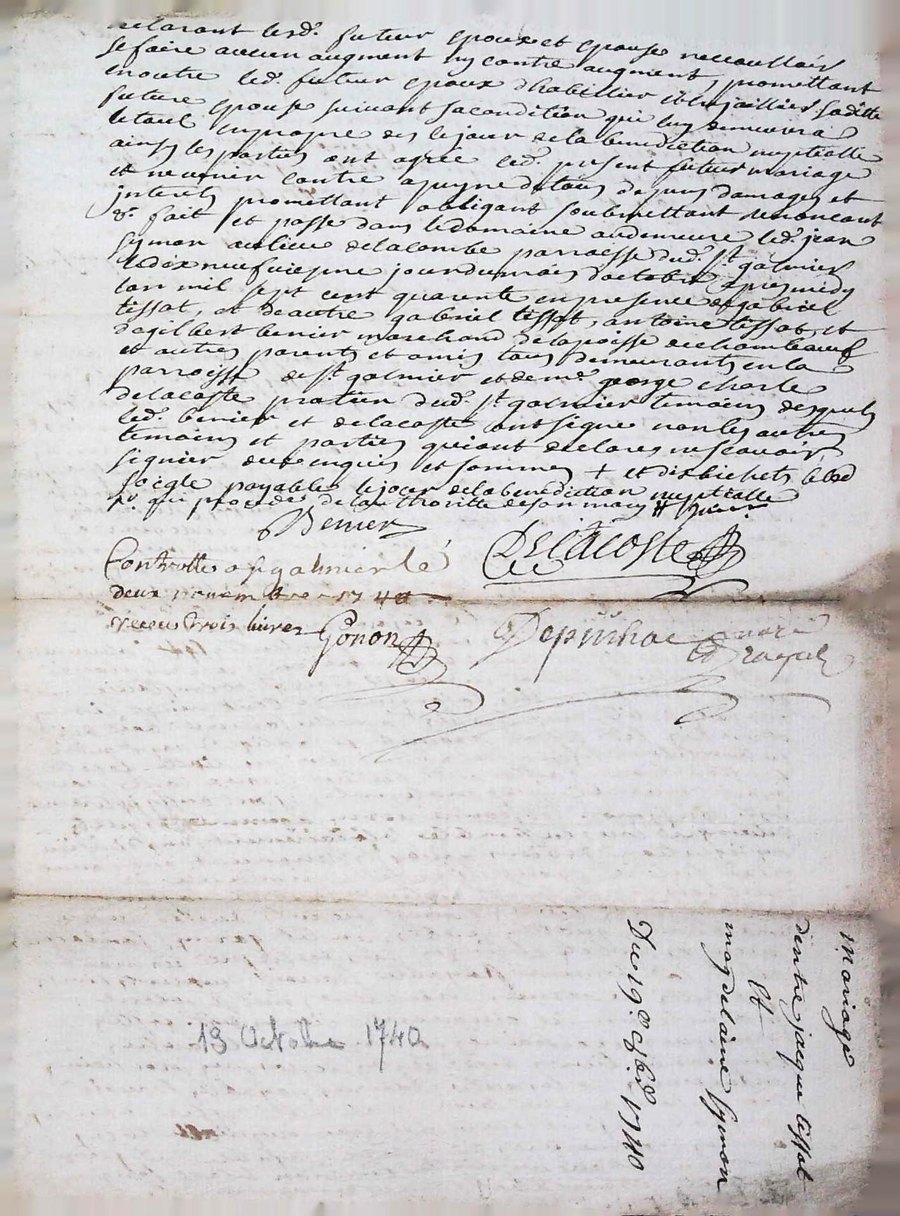 declarant lesd. futeur epoux et epouse ne voulloir
se faire aucun augment ny contre augment, promettant
en outre led. futeur epoux d'habillier et bejaillier sa ditte
future epouse suivant sa condition que luy demeurera
le tout en propre des le jour de la benediction nuptialle
ainsy les parties ont agree led. present futeur mariage
et ne venir contre a peyne de tous depens damages et
interets promettant obligant soubmettant renoncant
&. fait et passe dans le domaine au demeure led. jean
symon au lieu de lacombe parroisse dud. st galmier
le dix neufvieme jour du mois d'octobre apres midy
lan mil sept cent quarente en presence de gabriel
tissot, et de autre gabriel tissot, antoine tissot, et
d'agilbert benier marchand de la poisse de chambeauf
et autres parents et amis tous demeurants en la
parroisse de st galmier et de me. george charle
delacoste pratien dud. st galmier temoins desquels
led. benier et delacoste ont signe non les autres
temoins et parties qui ont declares ne scavoir
signier de ce enquis et sommes + et dix bichets bled
soigle payables le jour de la benediction nuptialle
qui procede de lauthoritte de son mary
Benier
Delacoste
Controlle a st galmier le
deux novembre 1740
receu trois livres Gonon
Depuihac
mariage
dentre jacque tissot
Et
magdelaine symon
Du 19e. 8bre. 1740
19 Octobre 1740